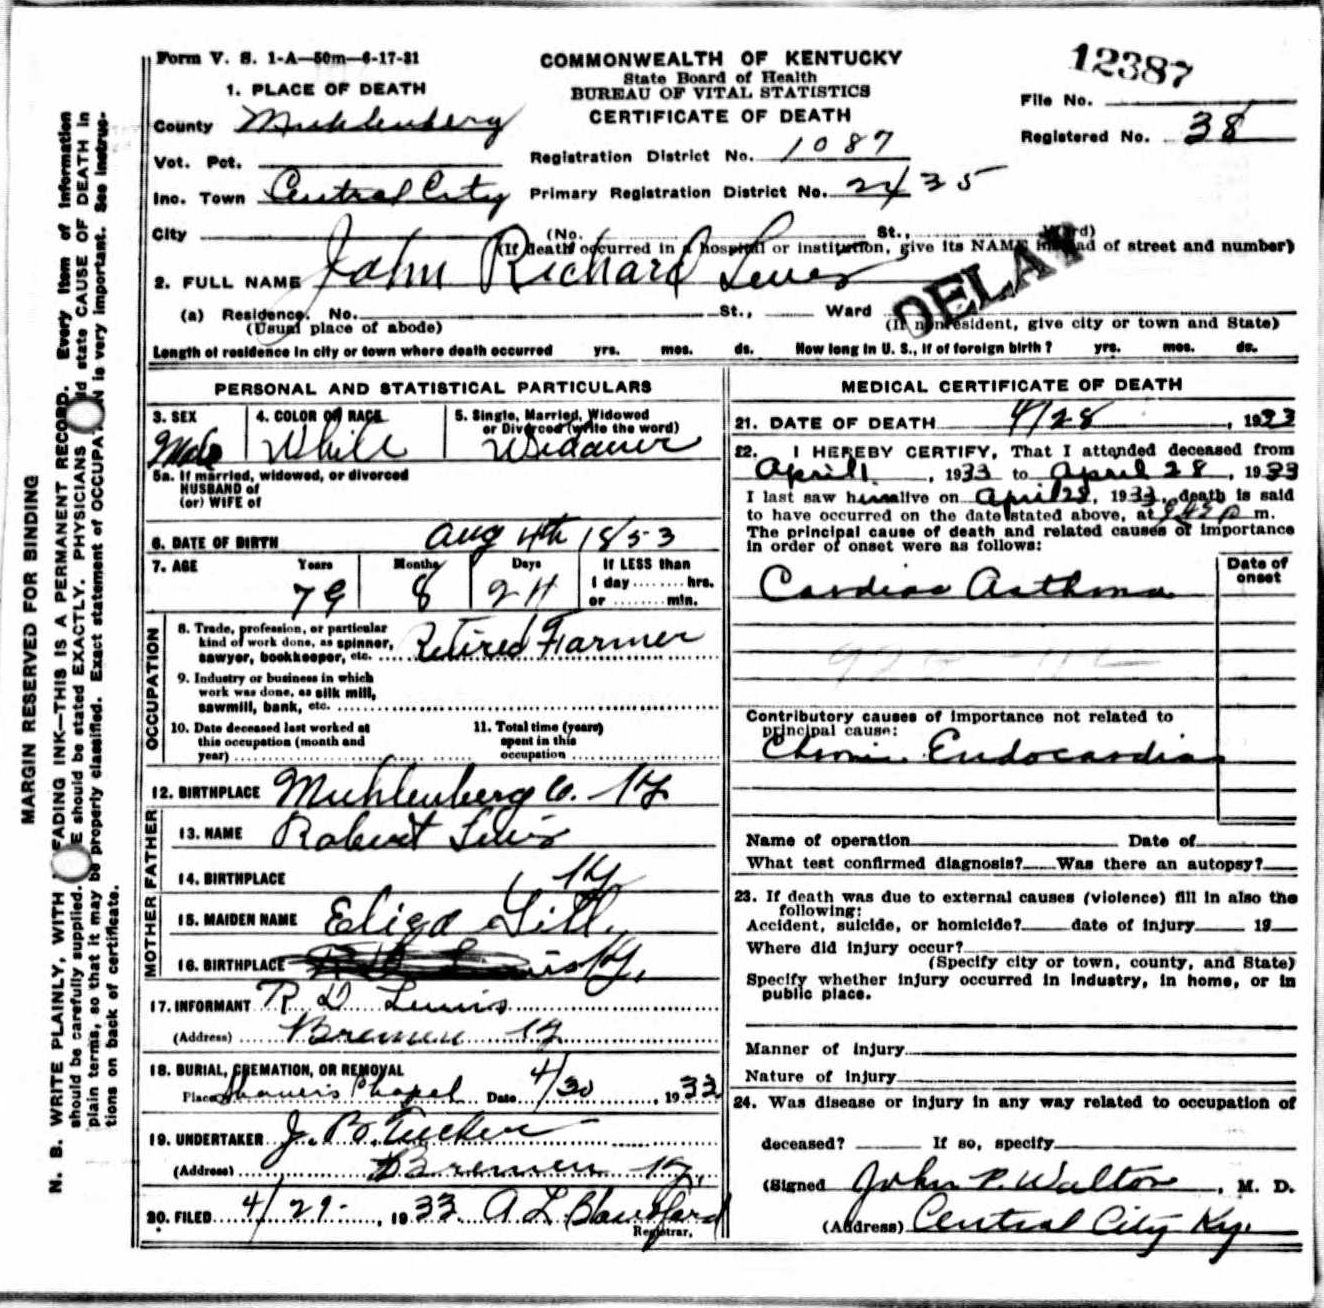 Form V. S. 1-A—50m—6-17-31
COMMONWEALTH OF KENTUCKY
State Board of Health
BUREAU OF VITAL STATISTICS
CERTIFICATE OF DEATH
12387
File No.
Registered No. 38
1. PLACE OF DEATH
County Muhlenberg
Vot. Pct.
Registration District No. 1087
Inc. Town Central City
Primary Registration District No. 2435
City
(No. St., Ward)
(If death occurred in a hospital or institution, give its NAME instead of street and number)
DELAY
2. FULL NAME John Richard Lewis
(a) Residence. No. St., Ward
(Usual place of abode) (If nonresident, give city or town and State)
Length of residence in city or town where death occurred yrs. mos. ds. How long in U. S., if of foreign birth? yrs. mos. ds.
PERSONAL AND STATISTICAL PARTICULARS
3. SEX Male
4. COLOR OR RACE White
5. Single, Married, Widowed or Divorced (write the word) Widower
5a. If married, widowed, or divorced
HUSBAND of
(or) WIFE of
6. DATE OF BIRTH Aug 4th 1853
7. AGE Years 79 Months 8 Days 24 If LESS than
1 day ........ hrs.
or ........ min.
OCCUPATION
8. Trade, profession, or particular
kind of work done, as spinner,
sawyer, bookkeeper, etc. Retired Farmer
9. Industry or business in which
work was done, as silk mill,
sawmill, bank, etc.
10. Date deceased last worked at
this occupation (month and
year)
11. Total time (years)
spent in this
occupation
12. BIRTHPLACE Muhlenberg Co. Ky
FATHER
13. NAME Robert Lewis
14. BIRTHPLACE Ky
MOTHER
15. MAIDEN NAME Eliza Gill
16. BIRTHPLACE Ky.
17. INFORMANT R D Lewis
(Address) Bremen Ky.
18. BURIAL, CREMATION, OR REMOVAL
Place Shavers Chapel Date 4/30, 1933
19. UNDERTAKER J. B. Tucker
(Address) Bremen Ky.
20. FILED 4/29-, 1933 A L Blandford
Registrar.
MEDICAL CERTIFICATE OF DEATH
21. DATE OF DEATH 4/28, 1933
22. I HEREBY CERTIFY, That I attended deceased from
April 1, 1933 to April 28, 1933
I last saw him alive on April 28, 1933, death is said
to have occurred on the date stated above, at p m.
The principal cause of death and related causes of importance
in order of onset were as follows:
Date of
onset
Cardiac Asthma
Contributory causes of importance not related to
principal cause:
Chronic Endocardia
Name of operation Date of
What test confirmed diagnosis? Was there an autopsy?
23. If death was due to external causes (violence) fill in also the
following:
Accident, suicide, or homicide? date of injury 19
Where did injury occur?
(Specify city or town, county, and State)
Specify whether injury occurred in industry, in home, or in
public place.
Manner of injury
Nature of injury
24. Was disease or injury in any way related to occupation of
deceased? If so, specify
(Signed John P. Walton, M. D.
(Address) Central City Ky.
MARGIN RESERVED FOR BINDING
N. B. WRITE PLAINLY, WITH FADING INK—THIS IS A PERMANENT RECORD. Every item of information
should be carefully supplied. E should be stated EXACTLY. PHYSICIANS ld state CAUSE OF DEATH in
plain terms, so that it may be properly classified. Exact statement of OCCUPATION is very important. See instruc-
tions on back of certificate.